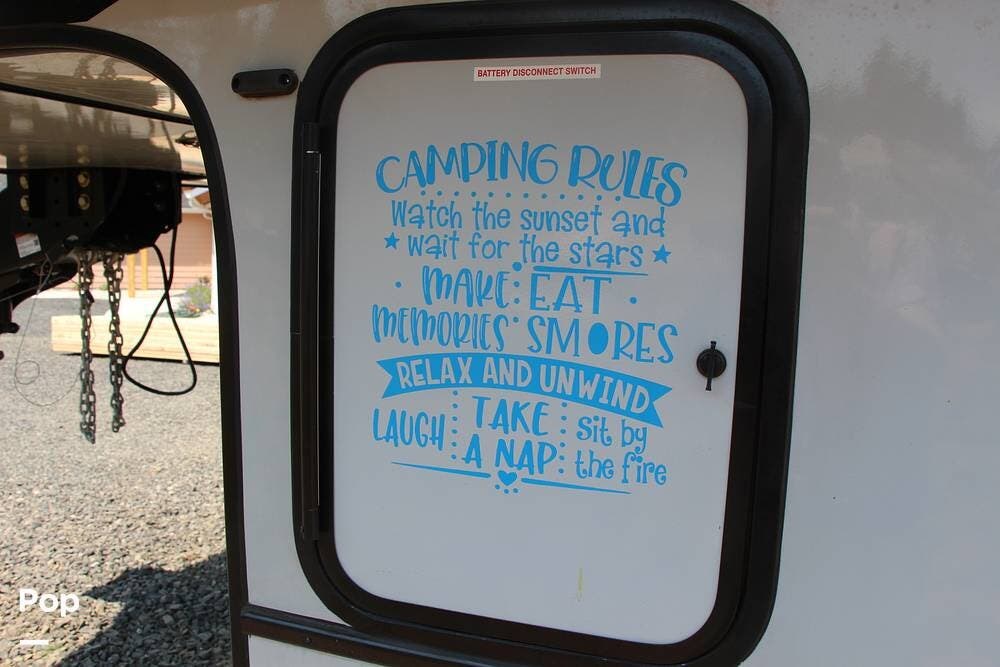 BATTERY DISCONNECT SWITCH
CAMPING RULES
Watch the sunset and
wait for the stars
MAKE EAT
MEMORIES SMORES
RELAX AND UNWIND
LAUGH TAKE A NAP sit by the fire
Pop